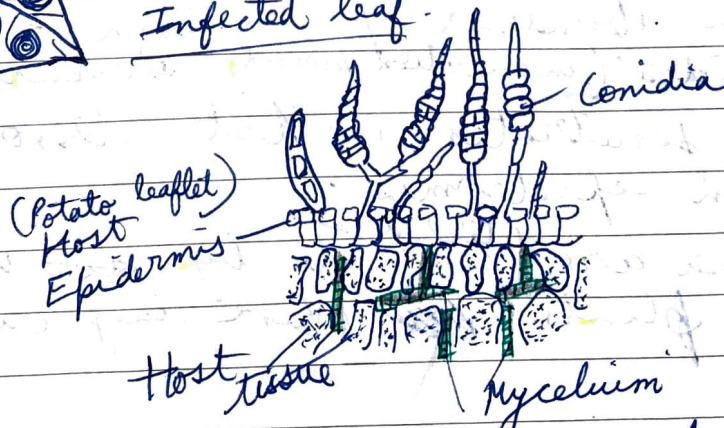 Infected leaf.
Conidia
(Potato leaflet)
Host
Epidermis
Host tissue
Mycelium